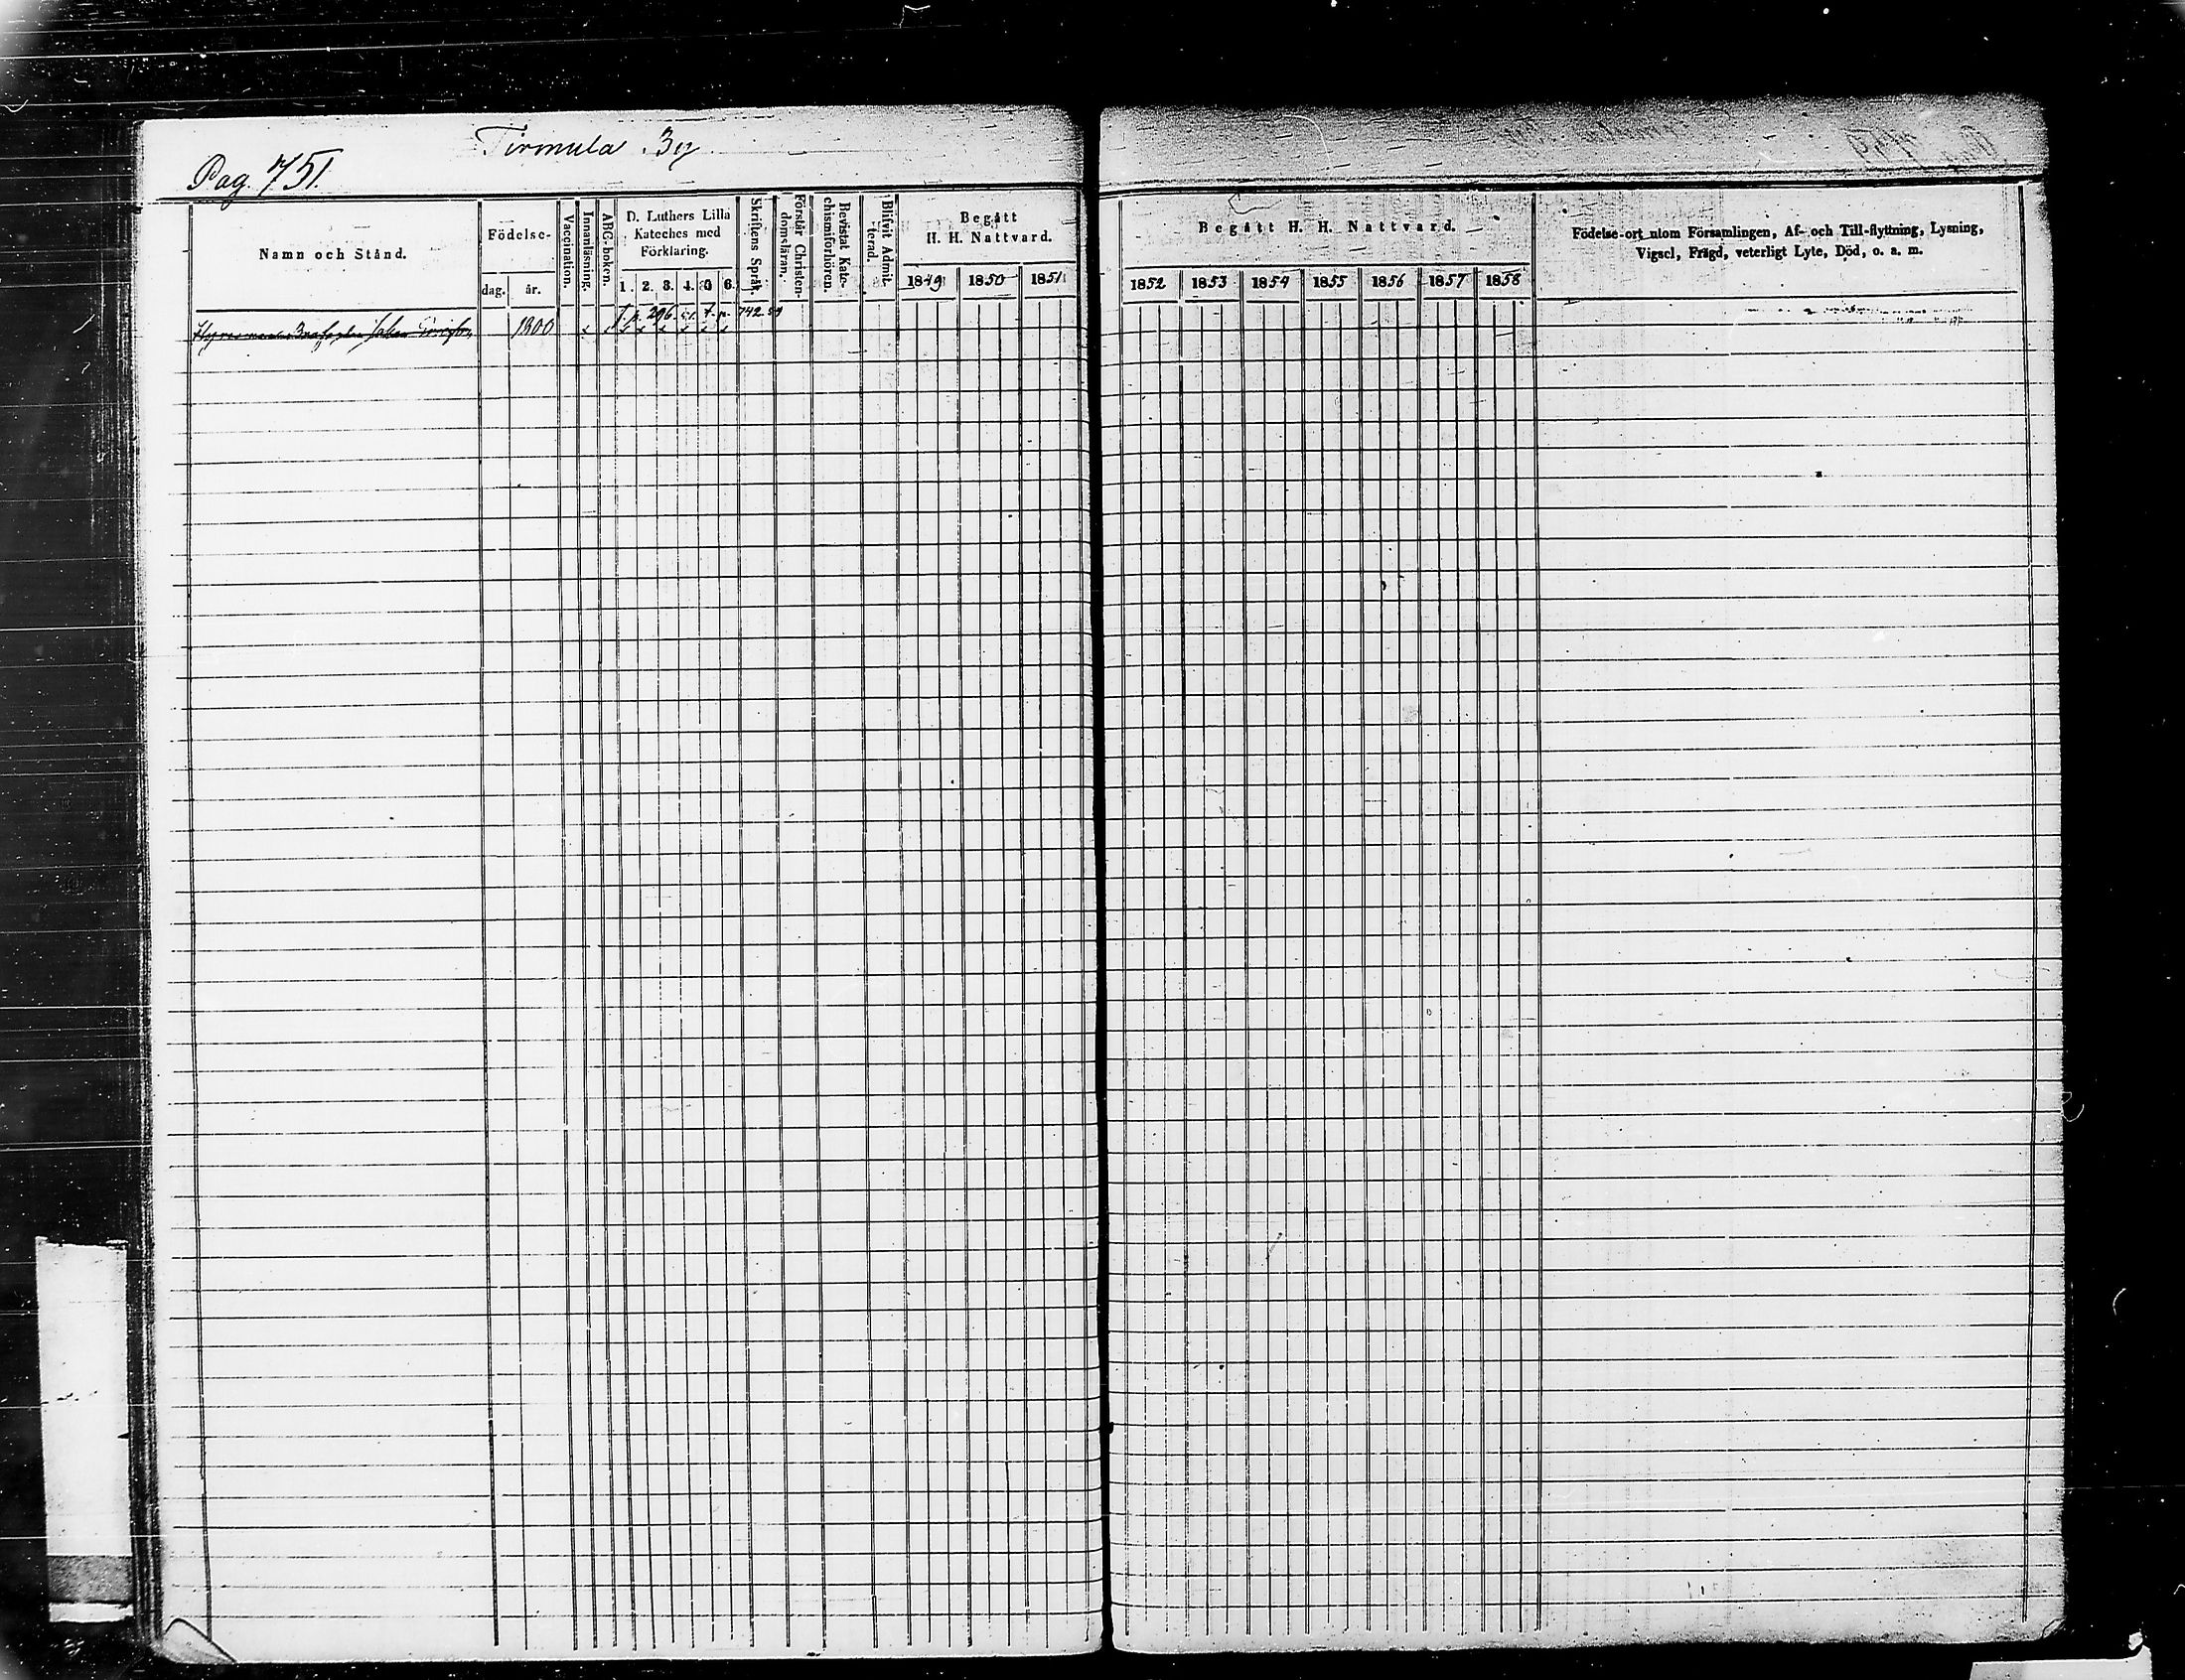 Tirmula By
Pag. 751.
Namn och Stånd.
Födelse-
dag.
år.
Vaccination.
Innanläsning.
ABC-boken.
D. Luthers Lilla
Kateches med
Förklaring.
1. 2. 3. 4. 5. 6.
Skriftens Språk.
Förstår Christen-
domsläran.
Bevistat Kate-
chismiförhören.
Blifvit Admit-
terad.
Begått
H. H. Nattvard.
1849 1850 1851
Begått H. H. Nattvard.
1852 1853 1854 1855 1856 1857 1858
Födelse-ort utom Församlingen, Af- och Till-flyttning, Lysning,
Vigsel, Frägd, veterligt Lyte, Död, o. a. m.
1800